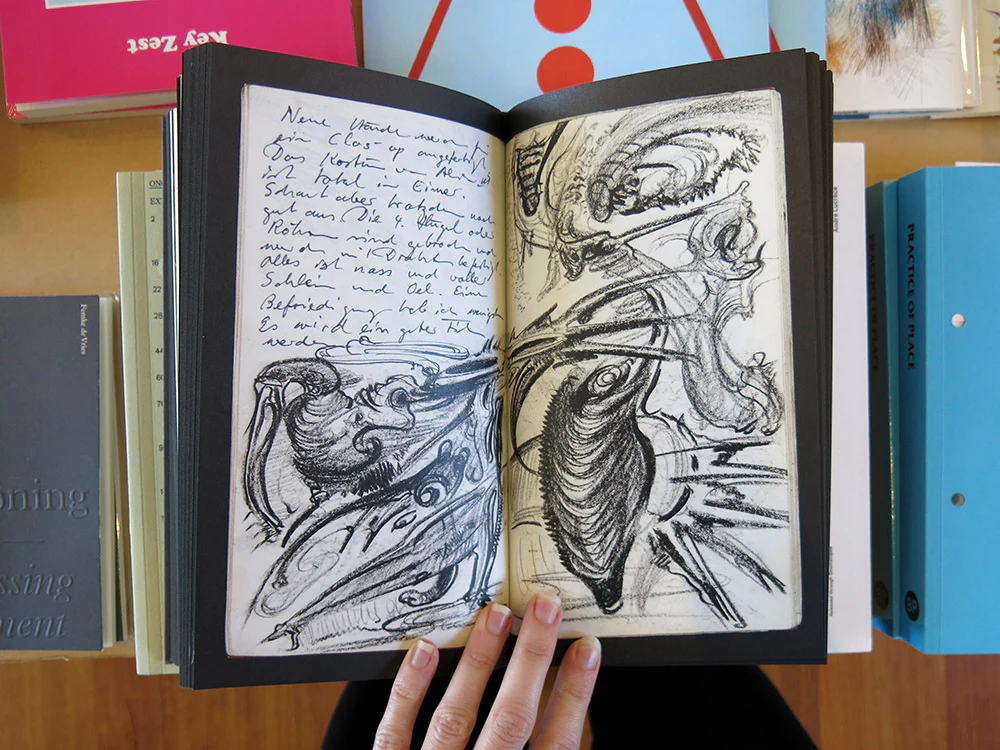 Key Zest
Neue Hände werden für
ein Close-up angefertigt
Das Kostüm von Alien
ist total im Eimer.
Schaut aber trotzdem noch
gut aus. Die 4 Flügel oder
Röhren sind gebrochen und
mit Draht befestigt
Alles ist nass und voller
Schleim und Oel. Eine
Befriedigung hab ich
Es wird ein guter
werden
Femke de Vries
oning
ssing
ment
2
16
22
PRACTICE OF PLACE
PRACTICE OF PLACE